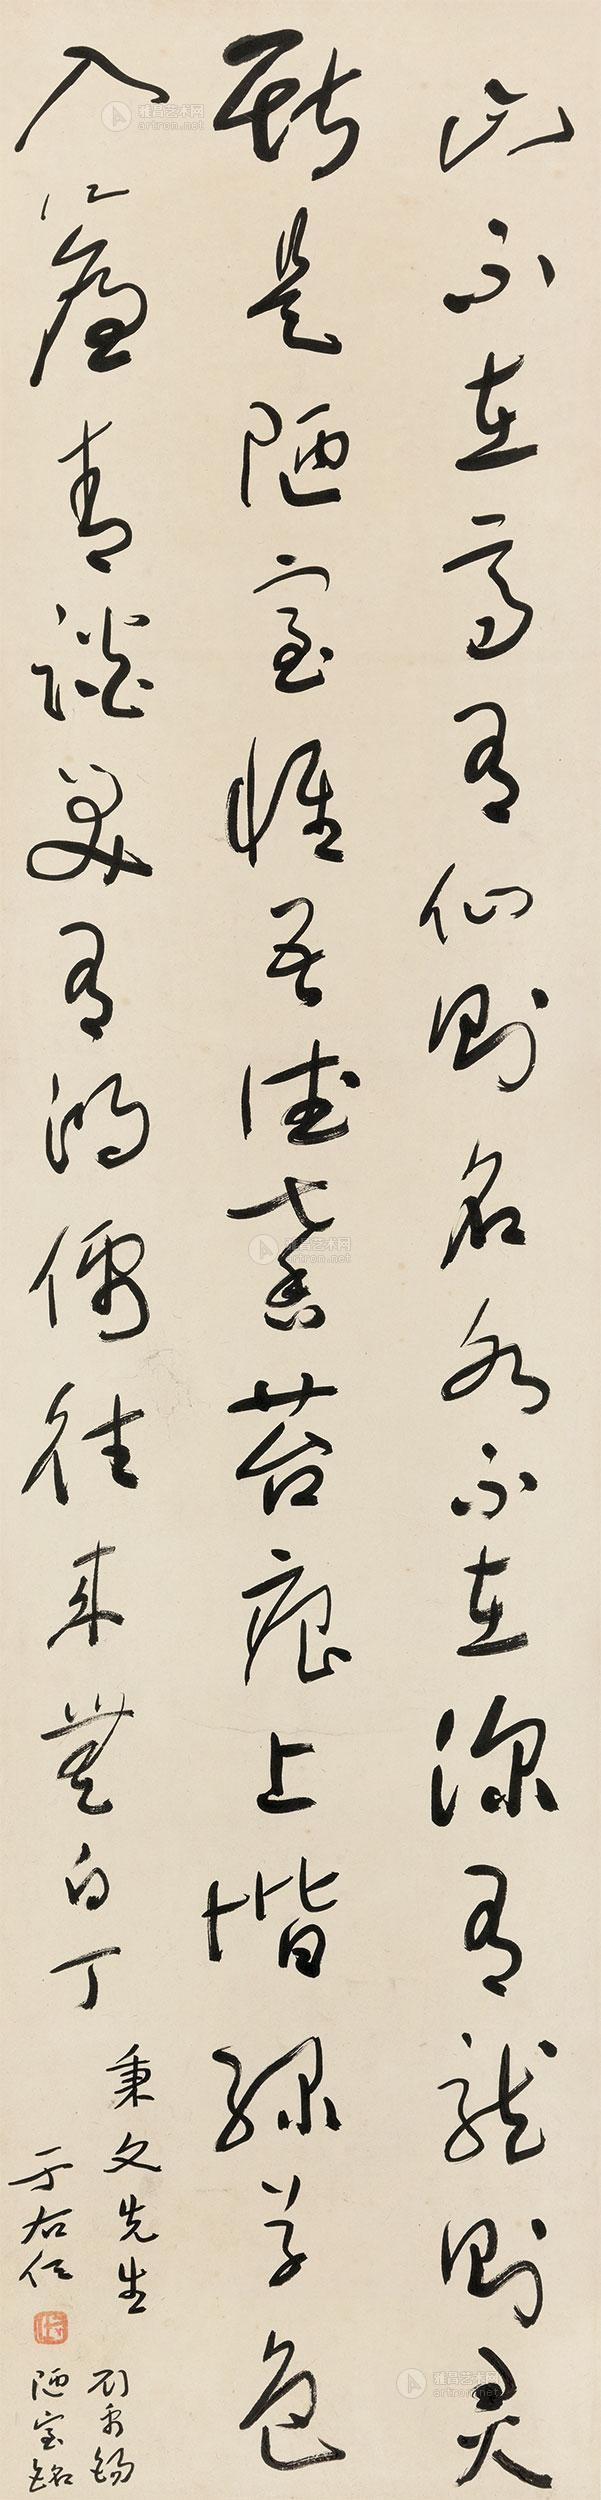 山不在高有仙則名水不在深有龍則灵
斯是陋室惟吾德馨苔痕上堦綠草色
入簾青談笑有鴻儒往来無白丁
秉文先生
于右任
劉禹錫
陋室銘
雅昌艺术网
artron.net
雅昌艺术网
artron.net
雅昌艺术网
artron.net